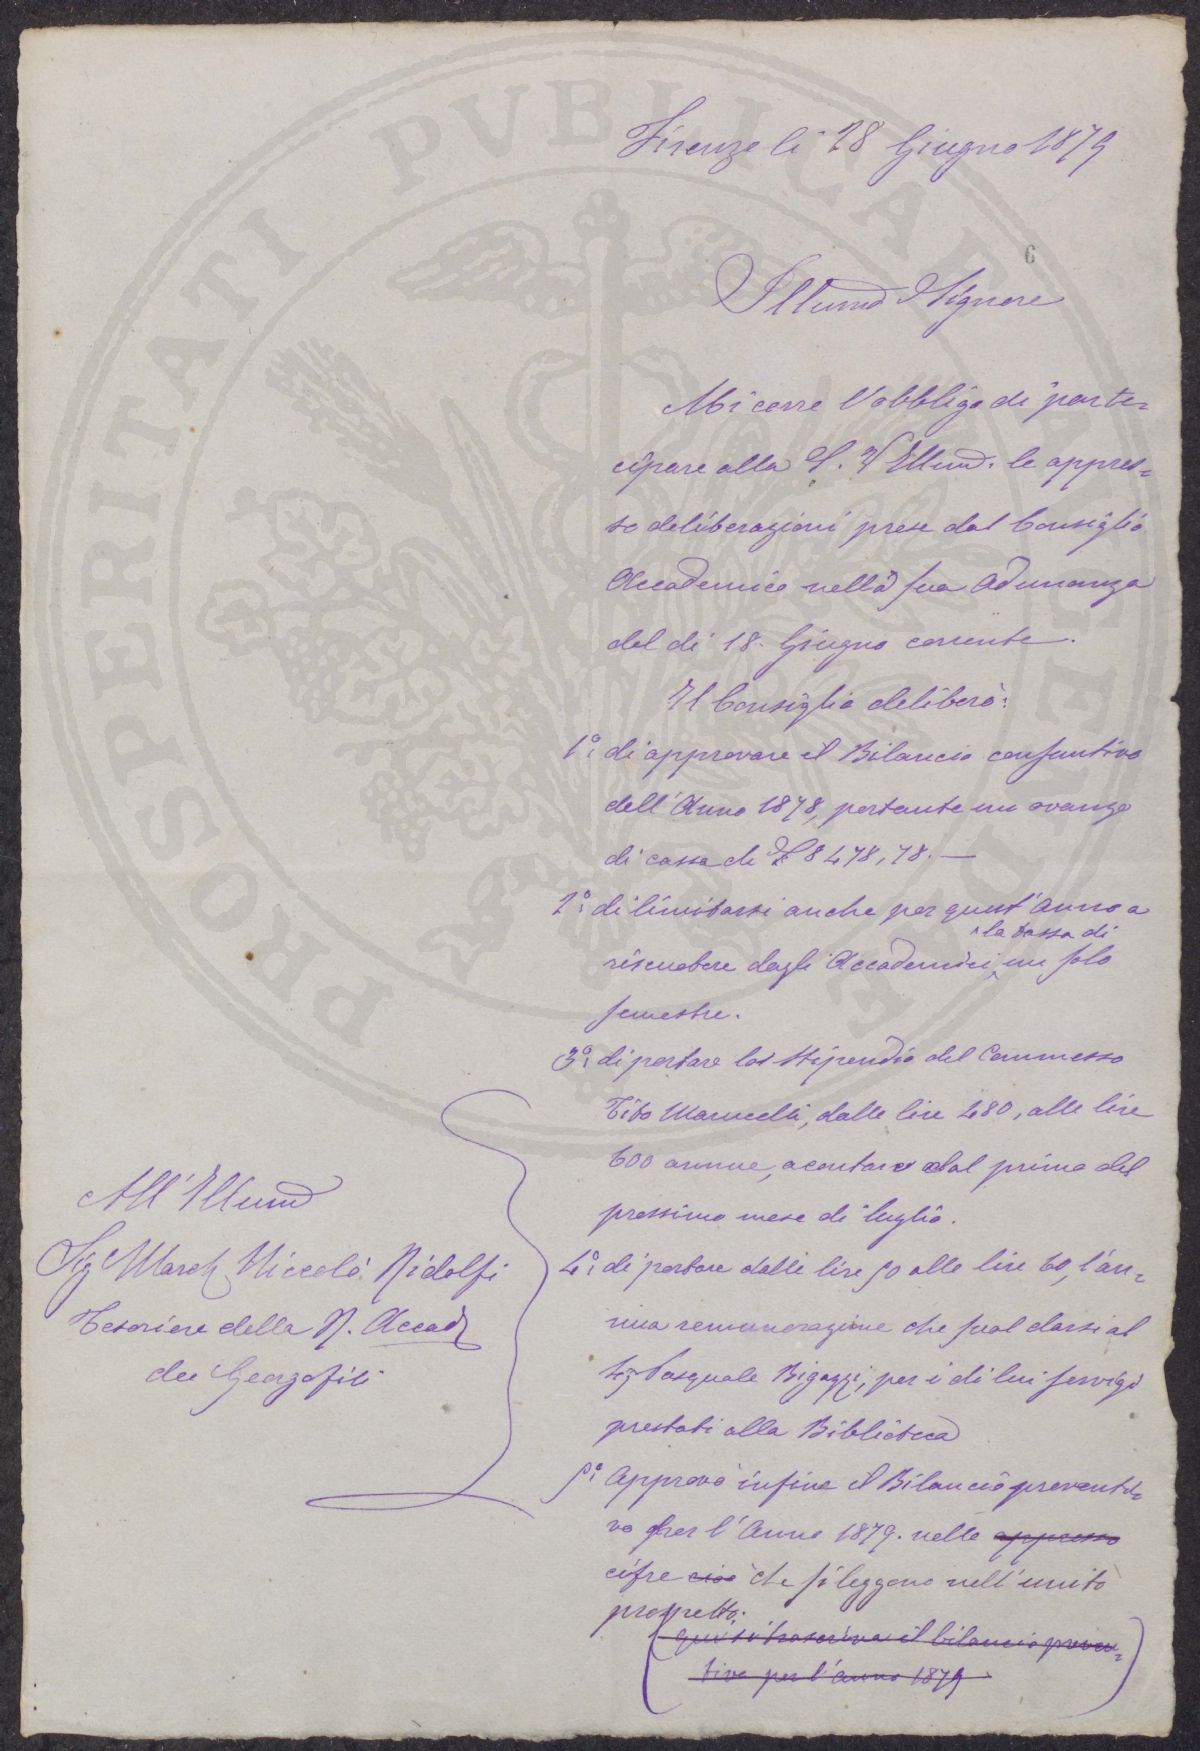 Firenze lì 28 Giugno 1879
6
Illumo Signore
Mi corre l'obbligo di parte=
cipare alla S. V Illuma. le appres=
so deliberazioni prese dal Consiglio
Accademico nella sua Adunanza
del dì 18. Giugno corrente.
Il Consiglio deliberò:
1º: di approvare il Bilancio consuntivo
dell'Anno 1878, portante un avanzo
di cassa di £ 8478,78. —
2º: di limitarsi anche per quest'Anno a
la tassa di
riscuotere dagli Accademici, un solo
semestre.
3º: di portare lo stipendio del Commesso
Tito Marucelli, dalle lire 480, alle lire
600 annue, a contare dal primo del
prossimo mese di luglio.
4º: di portare dalle lire 50 alle lire 60, l'an=
nua remunerazione che suol darsi al
Sig Pasquale Bigazzi, per i di lui servigi
prestati alla Biblioteca
5º: Approvò infine il Bilancio preventi=
vo per l'Anno 1879. nelle appresso
cifre cioè che si leggono nell'unito
prospetto.
(qui si trascriva il bilancio preven=
tivo per l'anno 1879)
All'Illumo
Sig March Niccolò Ridolfi
Tesoriere della R. Accad
dei Georgofili
PROSPERITATI PVBLICAE AVGENDAE